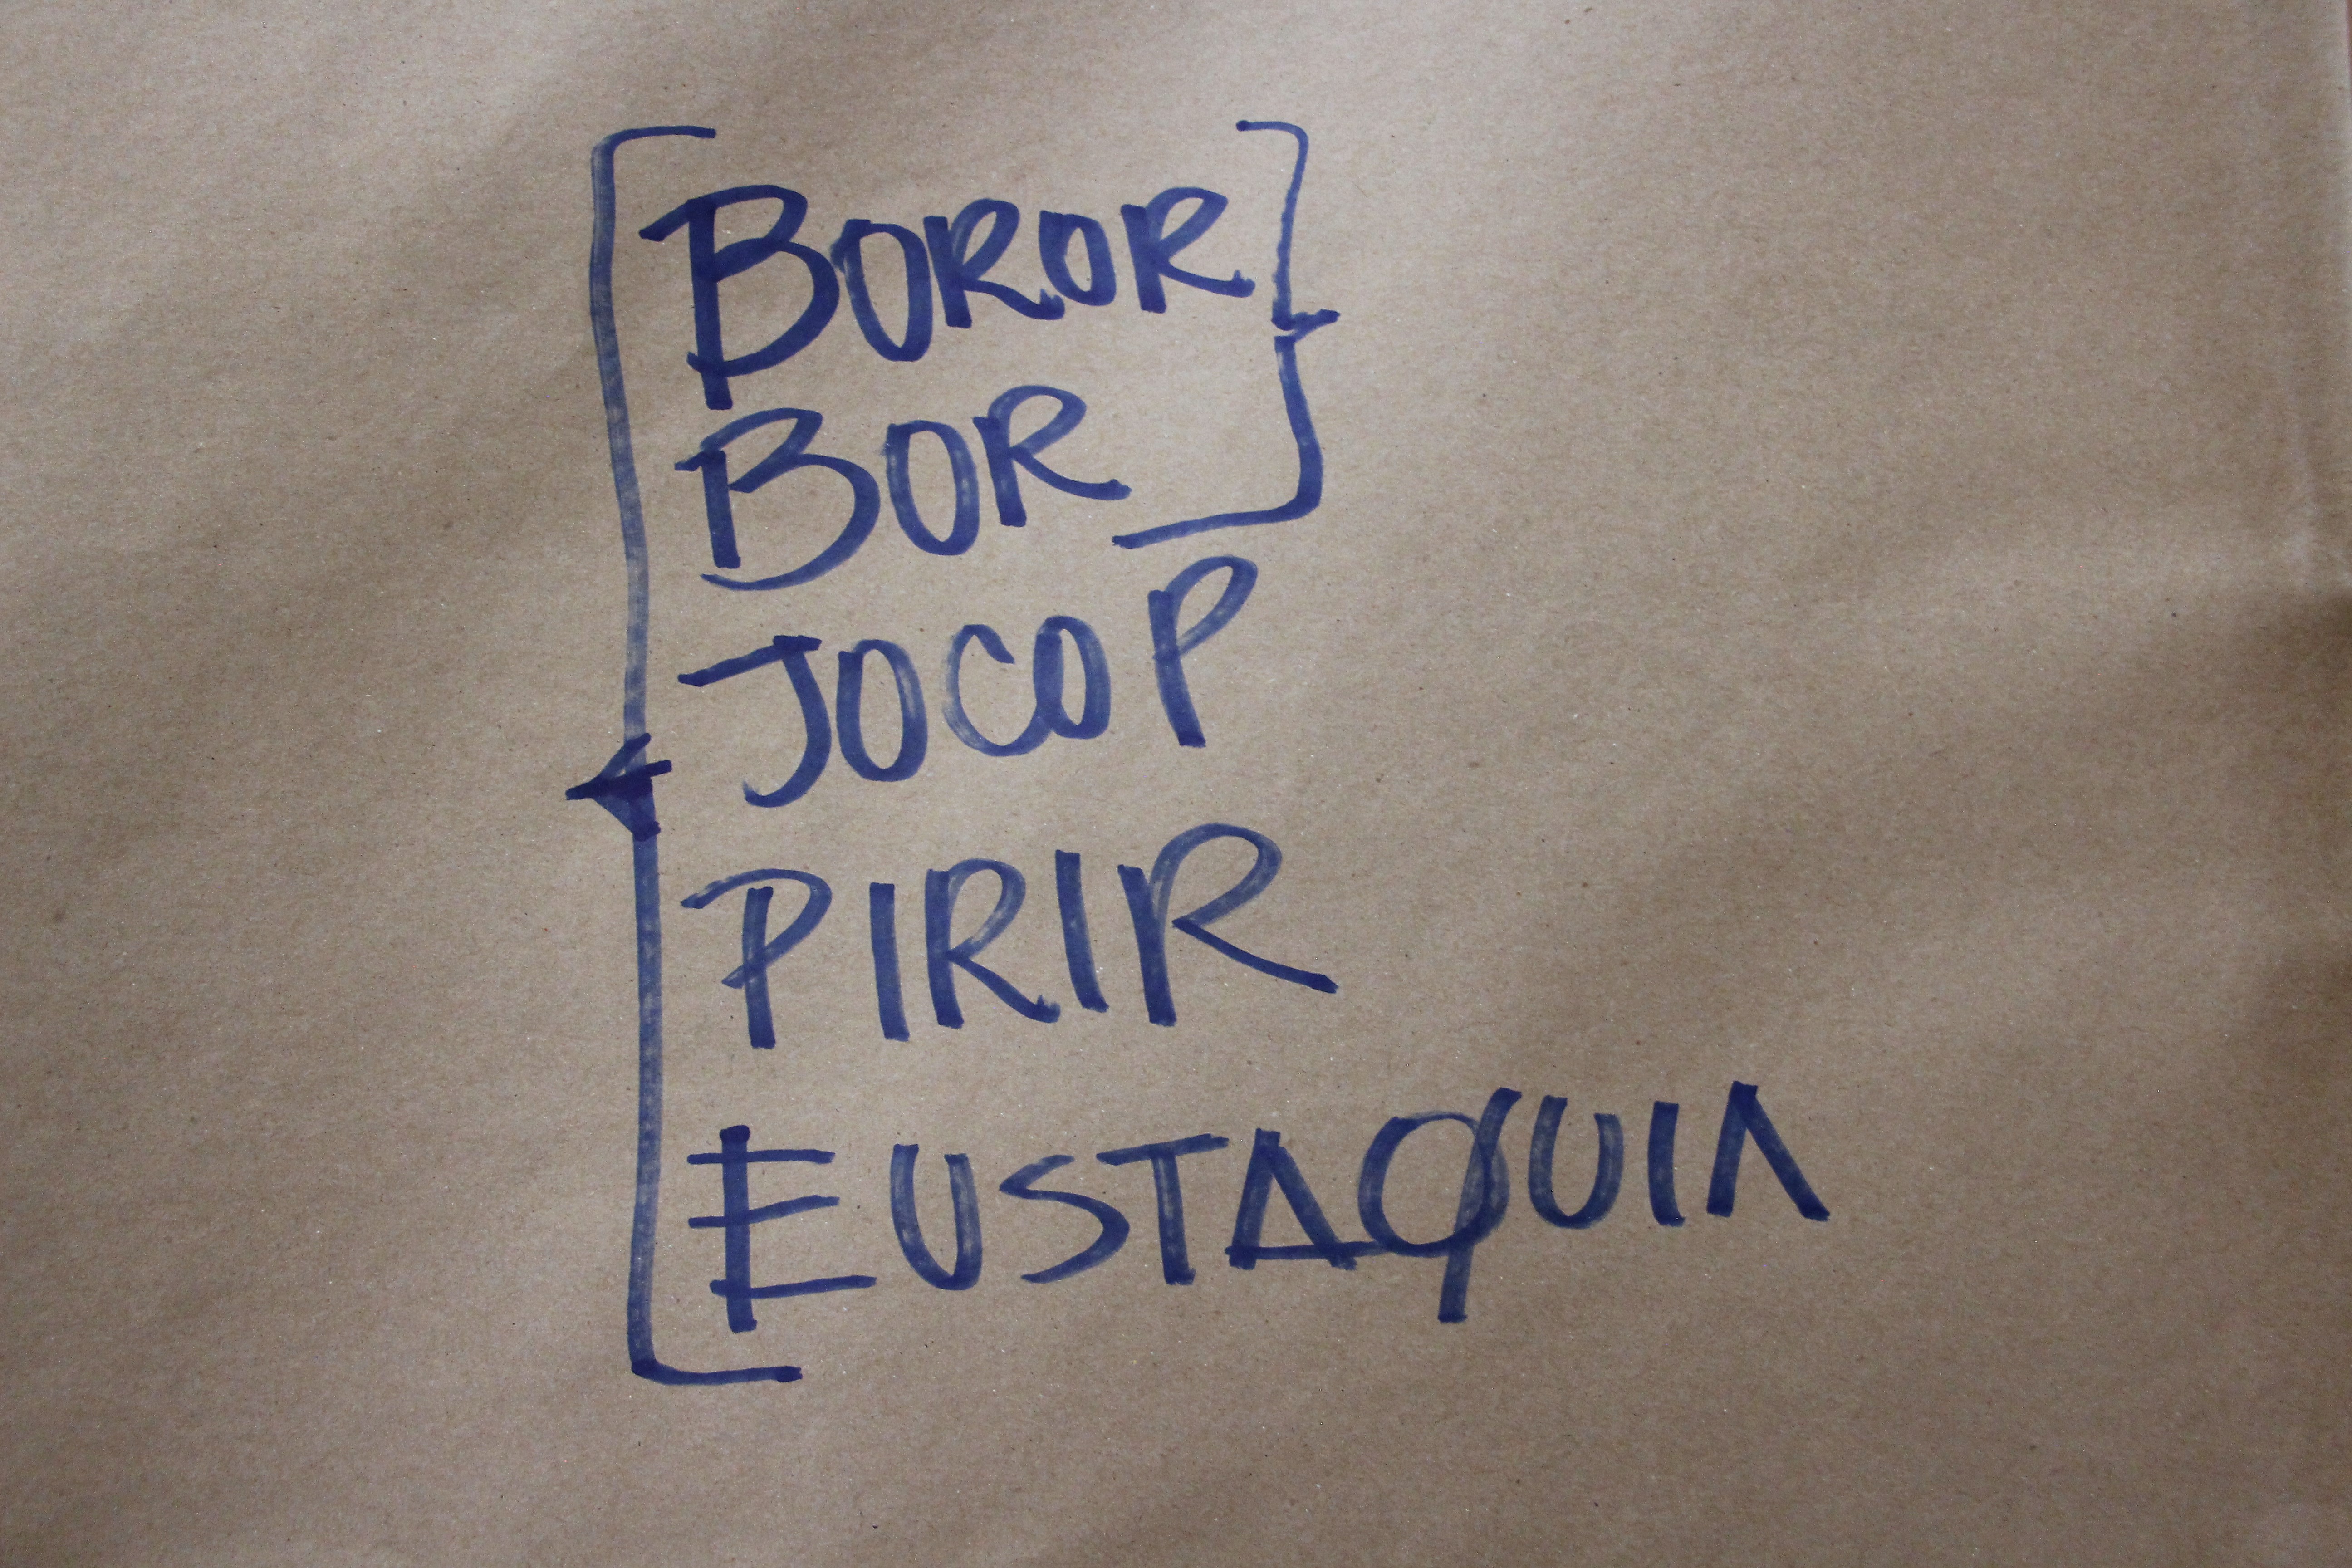 BOROR
BOR
JOCOP
PIRIR
EUSTAQUIA